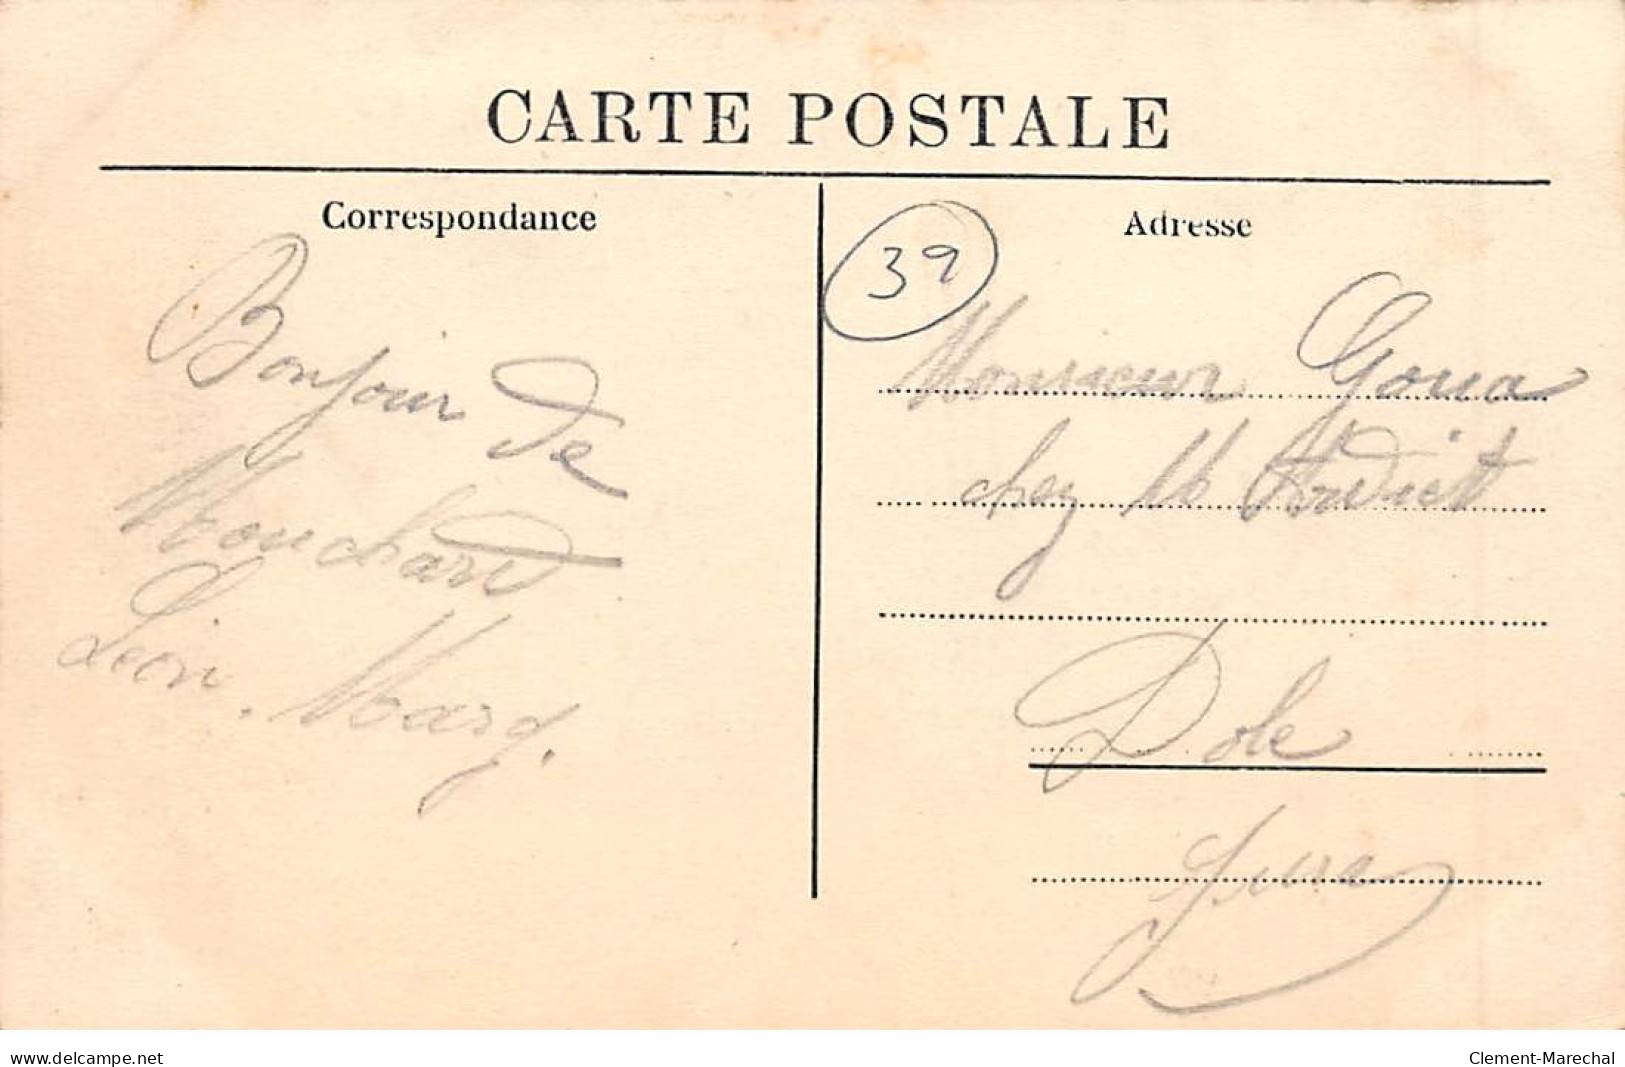 CARTE POSTALE
Correspondance
Bonjour de
Mouchard
Léon. Marg.
Adresse
39
Monsieur Goua
chez M Ardiet
Dole
Jura
www.delcampe.net
Clement-Marechal